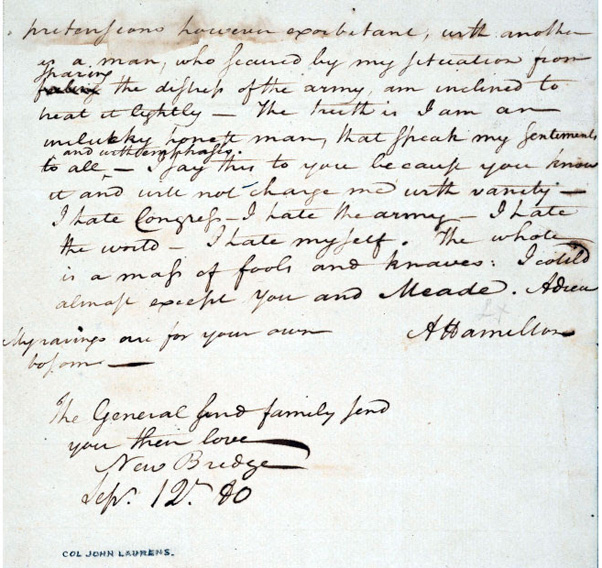 pretensions however exorbitant, with another
as a man, who secured by my situation from
sharing
feeling the distress of the army, am inclined to
treat it lightly — The truth is I am an
unlucky honest man, that speak my sentiments
and with emphasis.
to all, — I say this to you because you know
it and will not charge me with vanity —
I hate Congress — I hate the army — I hate
the world — I hate myself. The whole
is a mass of fools and knaves: I could
almost except you and Meade. Adieu
A Hamilton
My ravings are for your own
bosom —
The General and family send
you their love
New Bridge
Sepr. 12. 80
COL JOHN LAURENS.